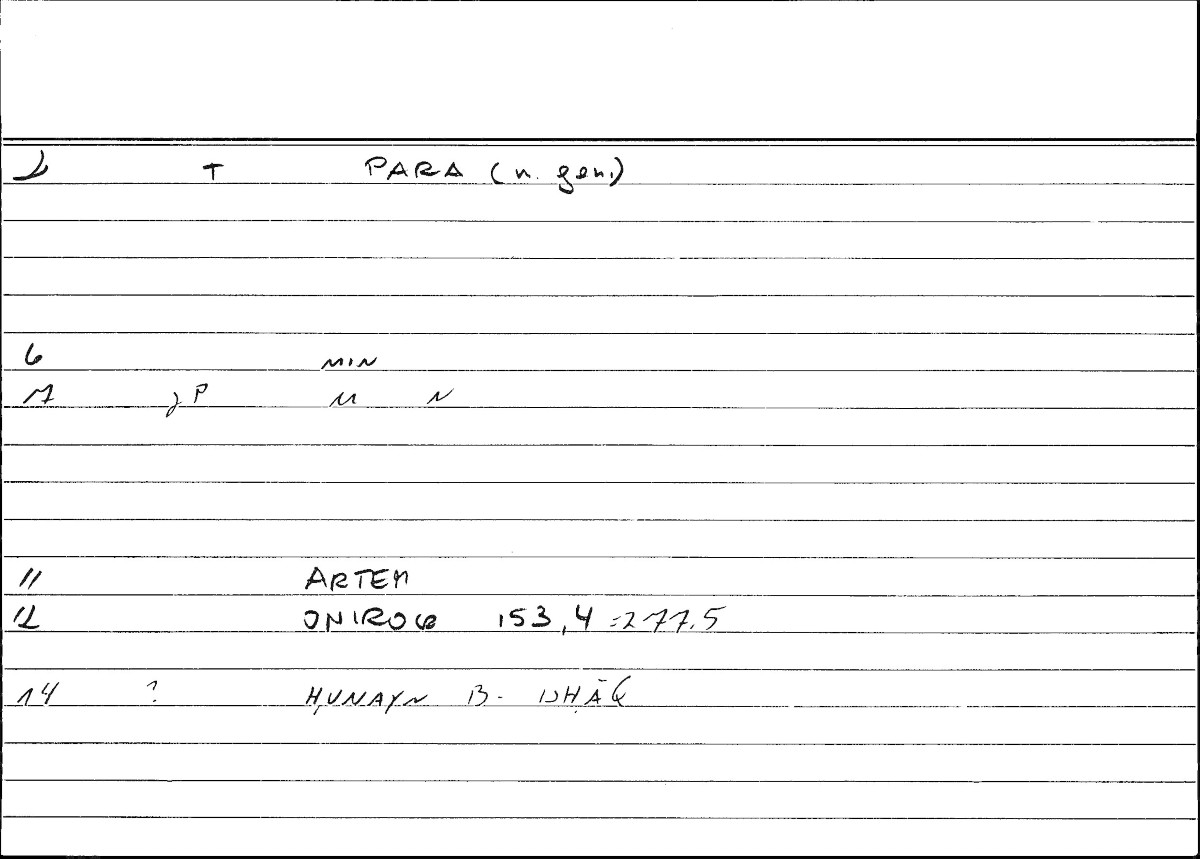 2 T PARA (n. gen.)
6 MIN
7 P M N
11 ARTEM
12 ONIROC 153,4 =277.5
14 ? ḤUNAYN B. ISḤĀQ